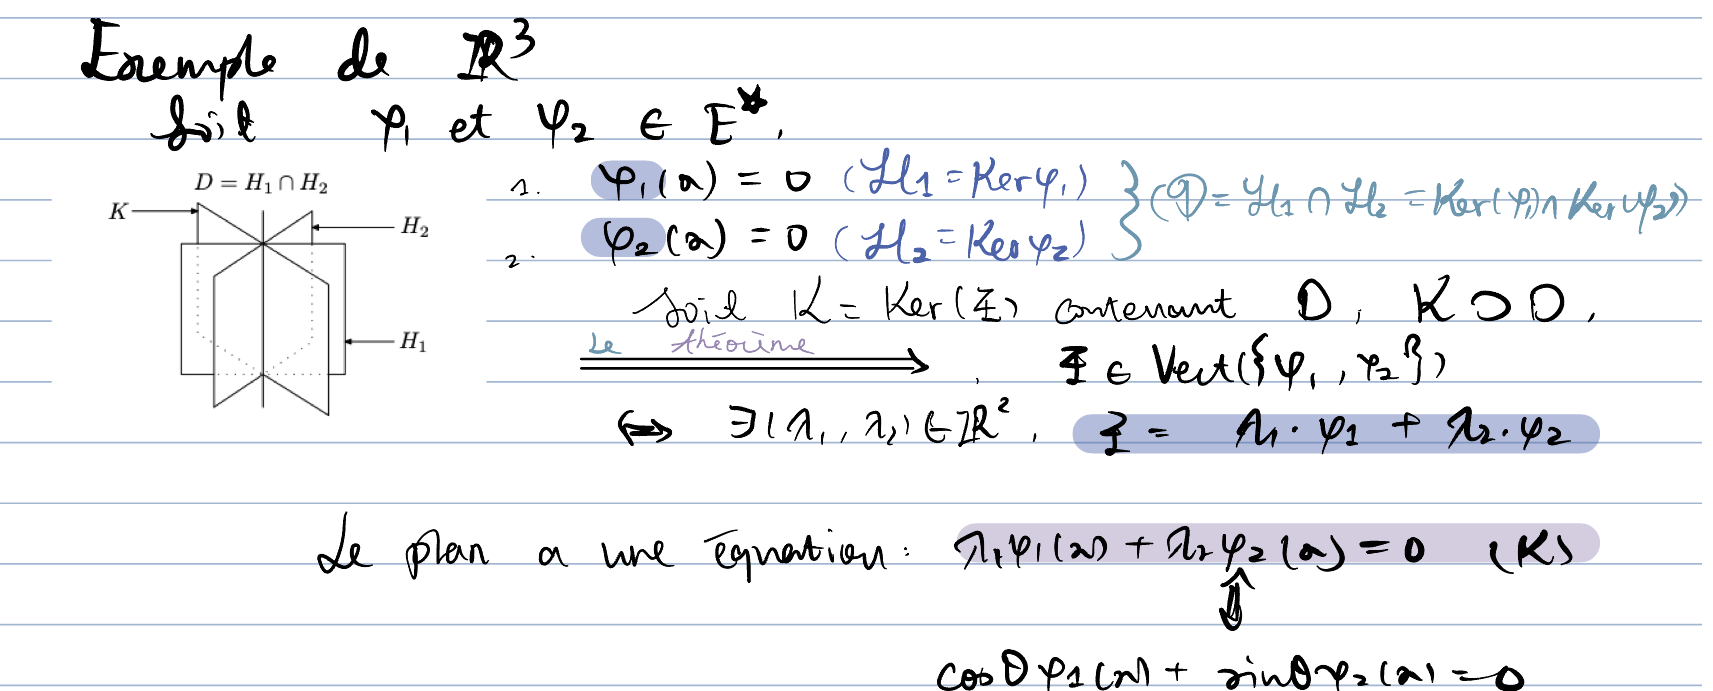 Exemple de ℝ³
Soit φ₁ et φ₂ ∈ E*.
D = H₁ ∩ H₂
K
H₂
H₁
1. φ₁(x) = 0 (H₁ = Ker φ₁)
2. φ₂(x) = 0 (H₂ = Ker φ₂)
} (D = H₁ ∩ H₂ = Ker(φ₁) ∩ Ker(φ₂))
Soit K = Ker(Φ) contenant D, K ⊃ D.
Le théorème ⟹ Φ ∈ Vect({φ₁, φ₂})
⟺ ∃(λ₁, λ₂) ∈ ℝ², Φ = λ₁·φ₁ + λ₂·φ₂
Le plan a une équation: λ₁φ₁(x) + λ₂φ₂(x) = 0 (K)
⇕
cosθ φ₁(x) + sinθ φ₂(x) = 0